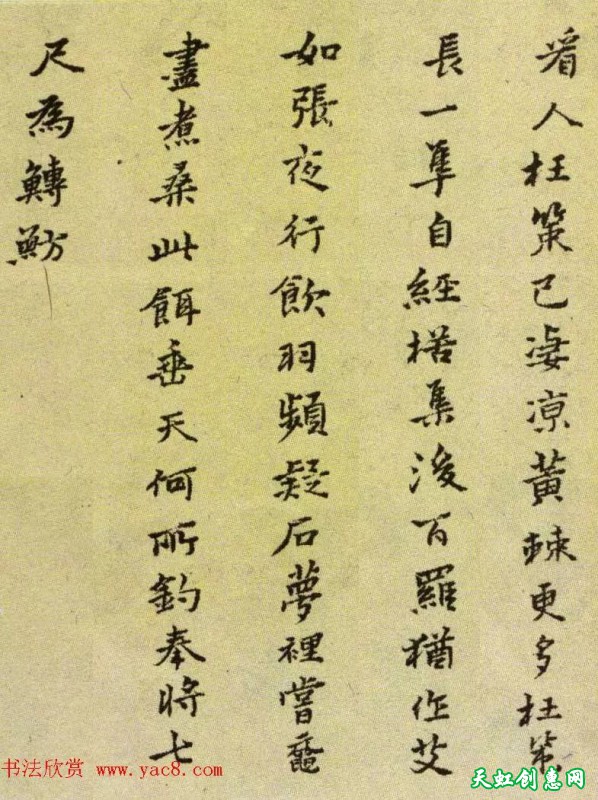 看人枉策已淒凉黃棘更多枉策
長一隼自經楛集後百羅猶作艾
如張夜行飲羽頻疑石夢裡嘗黿
盡煮桑此餌垂天何所釣奉將七
尺為鱄魴
书法欣赏 www.yac8.com
天虹创惠网